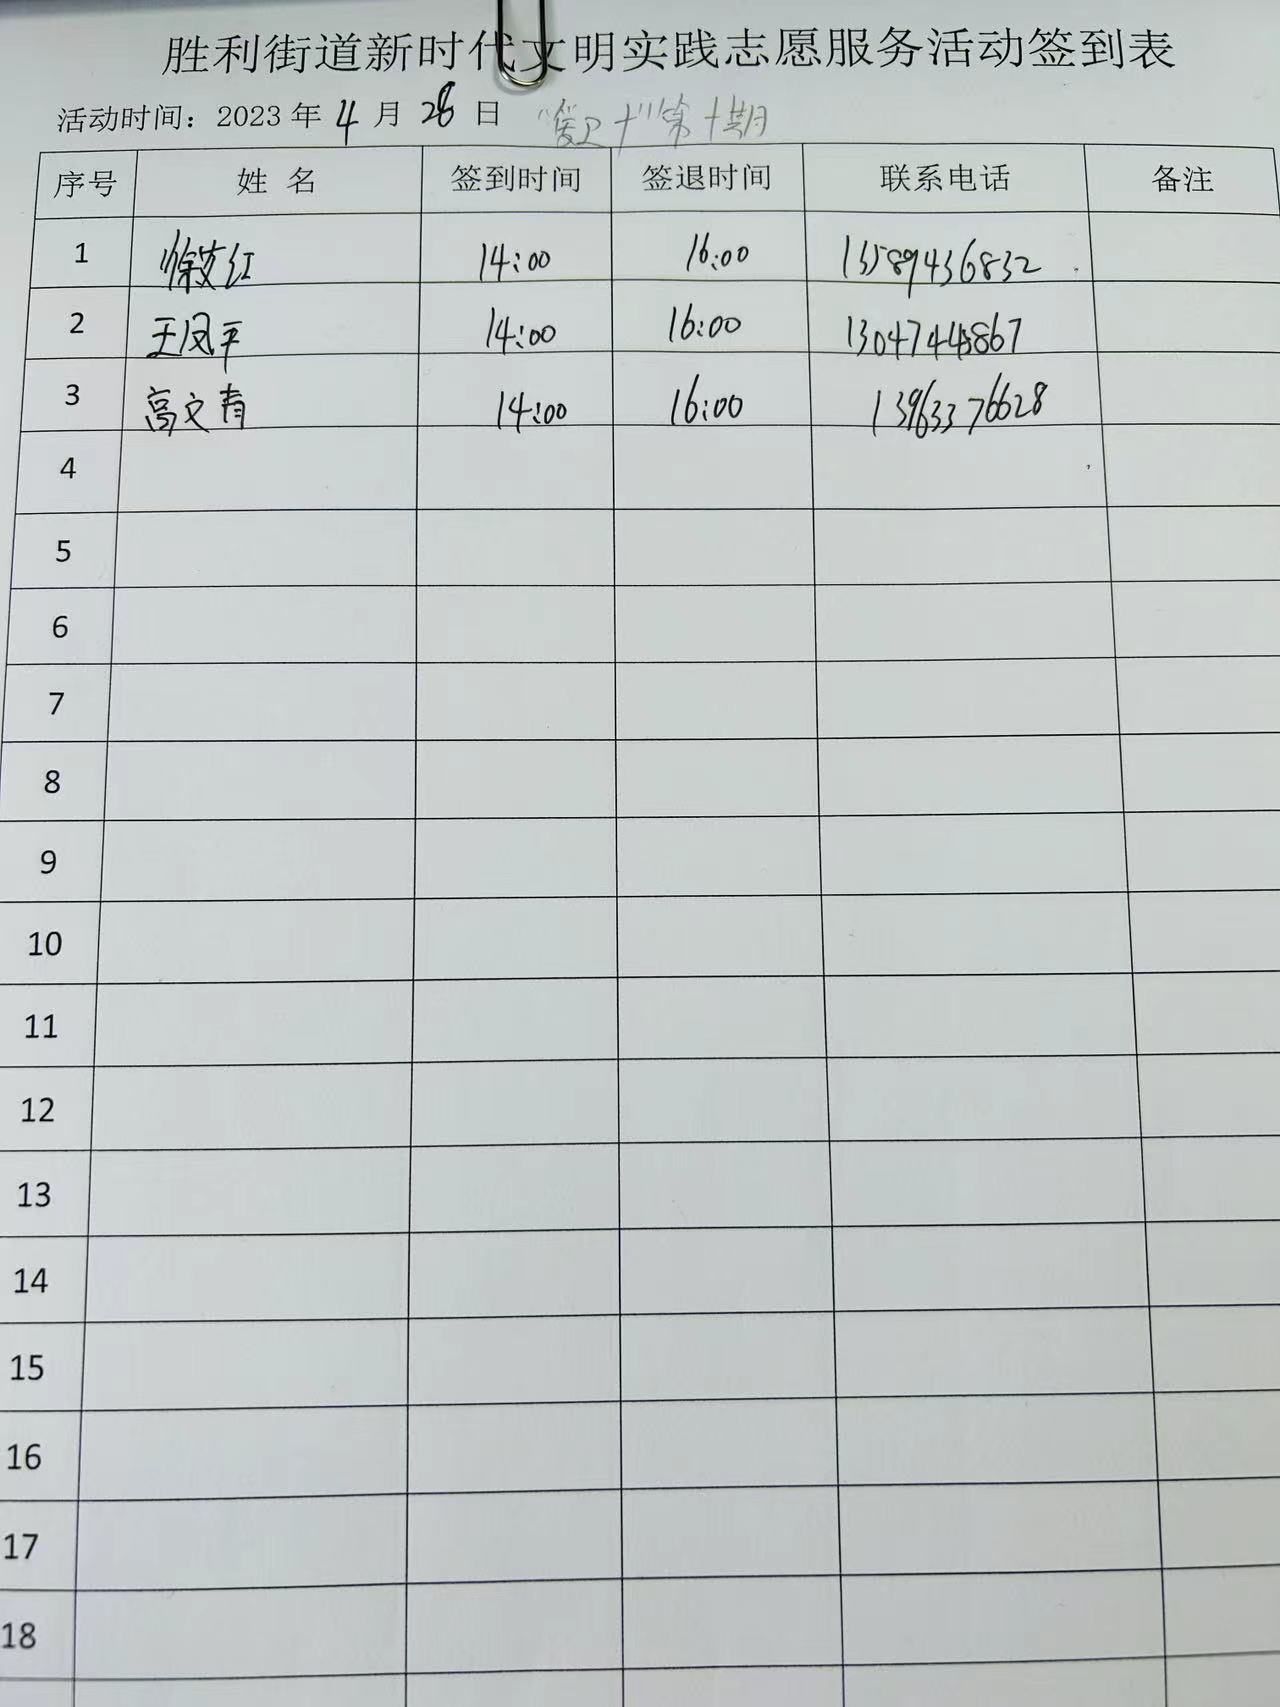 胜利街道新时代文明实践志愿服务活动签到表
活动时间：2023 年 4 月 28 日 第十期
序号 姓 名 签到时间 签退时间 联系电话 备注
1 徐 红 14:00 16:00 13589436832
2 王凤平 14:00 16:00
3 高文青 14:00 16:00 13963376628
4
5
6
7
8
9
10
11
12
13
14
15
16
17
18